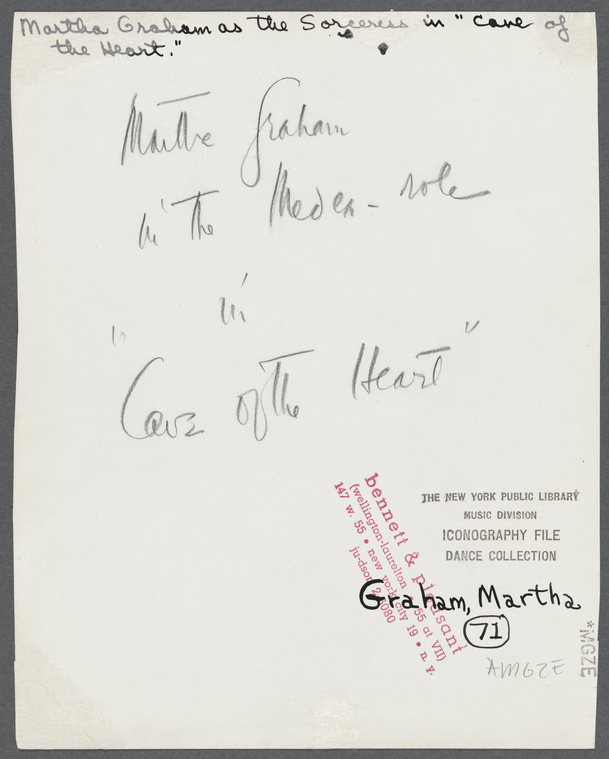 Martha Graham as the Sorceress in "Cave of
the Heart."
Martha Graham
in the Medea - role
in
"Cave of the Heart"
bennett & pleasant
(wellington-laurelton • 55 at VII)
147 w. 55 • new york city 19 • n. y.
ju-dson 2-0080
THE NEW YORK PUBLIC LIBRARY
MUSIC DIVISION
ICONOGRAPHY FILE
DANCE COLLECTION
Graham, Martha
71
*MGZE
AMGZE